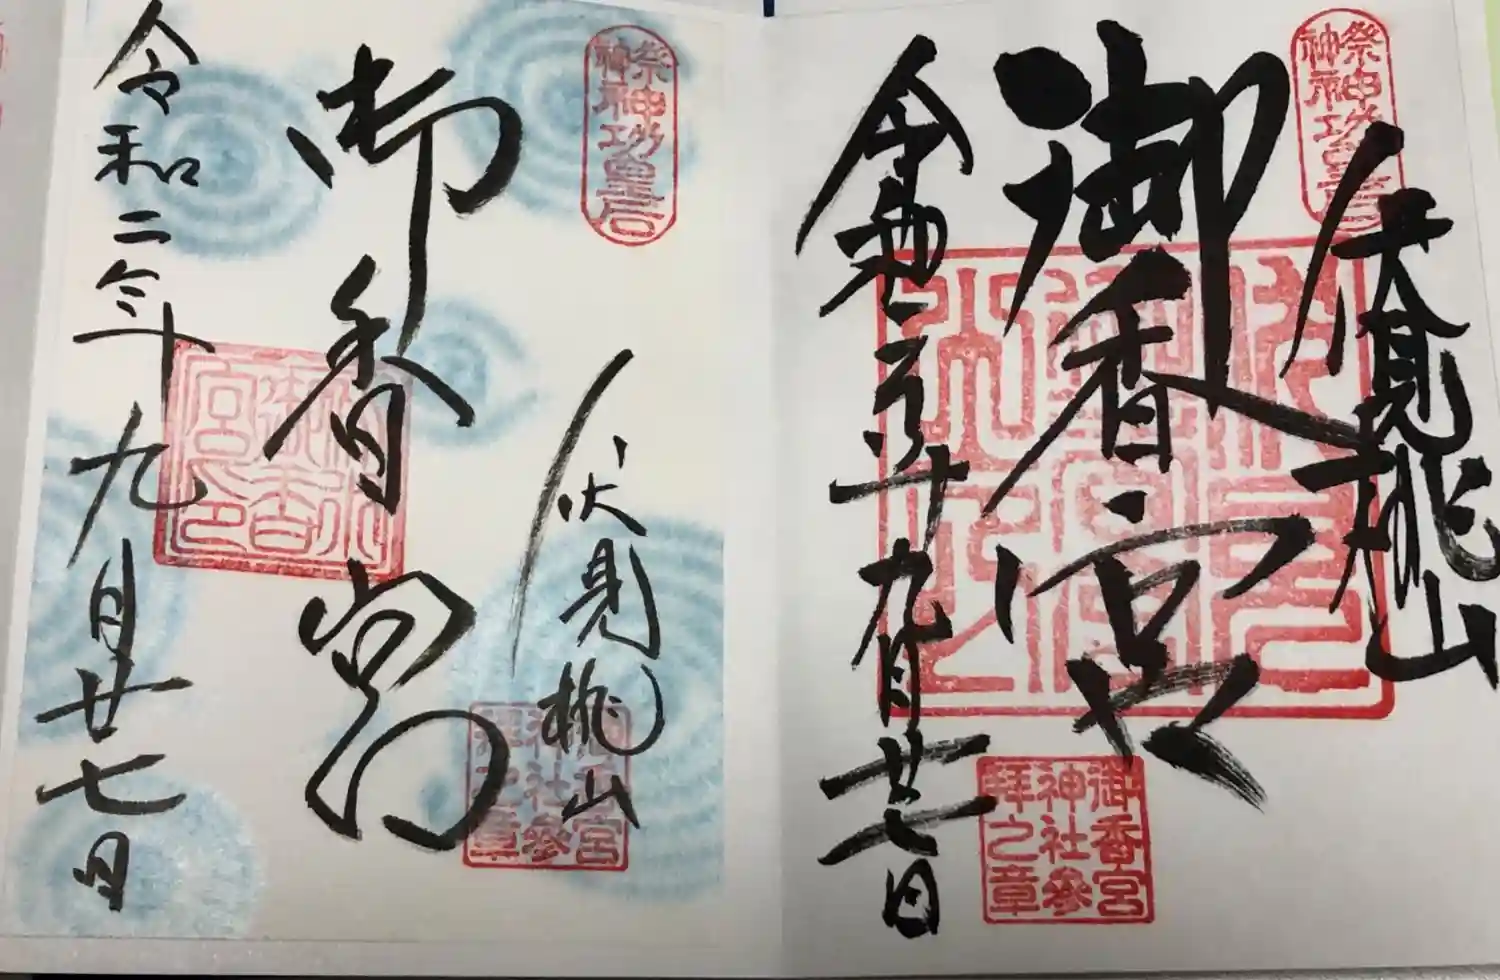 祭神
神功皇后
伏見桃山
御香宮
御香宮
神社參
拝之章
九月廿七日
祭神
神功皇后
伏見桃山
御香宮
御香宮
神社參
拝之章
令和二年九月廿七日